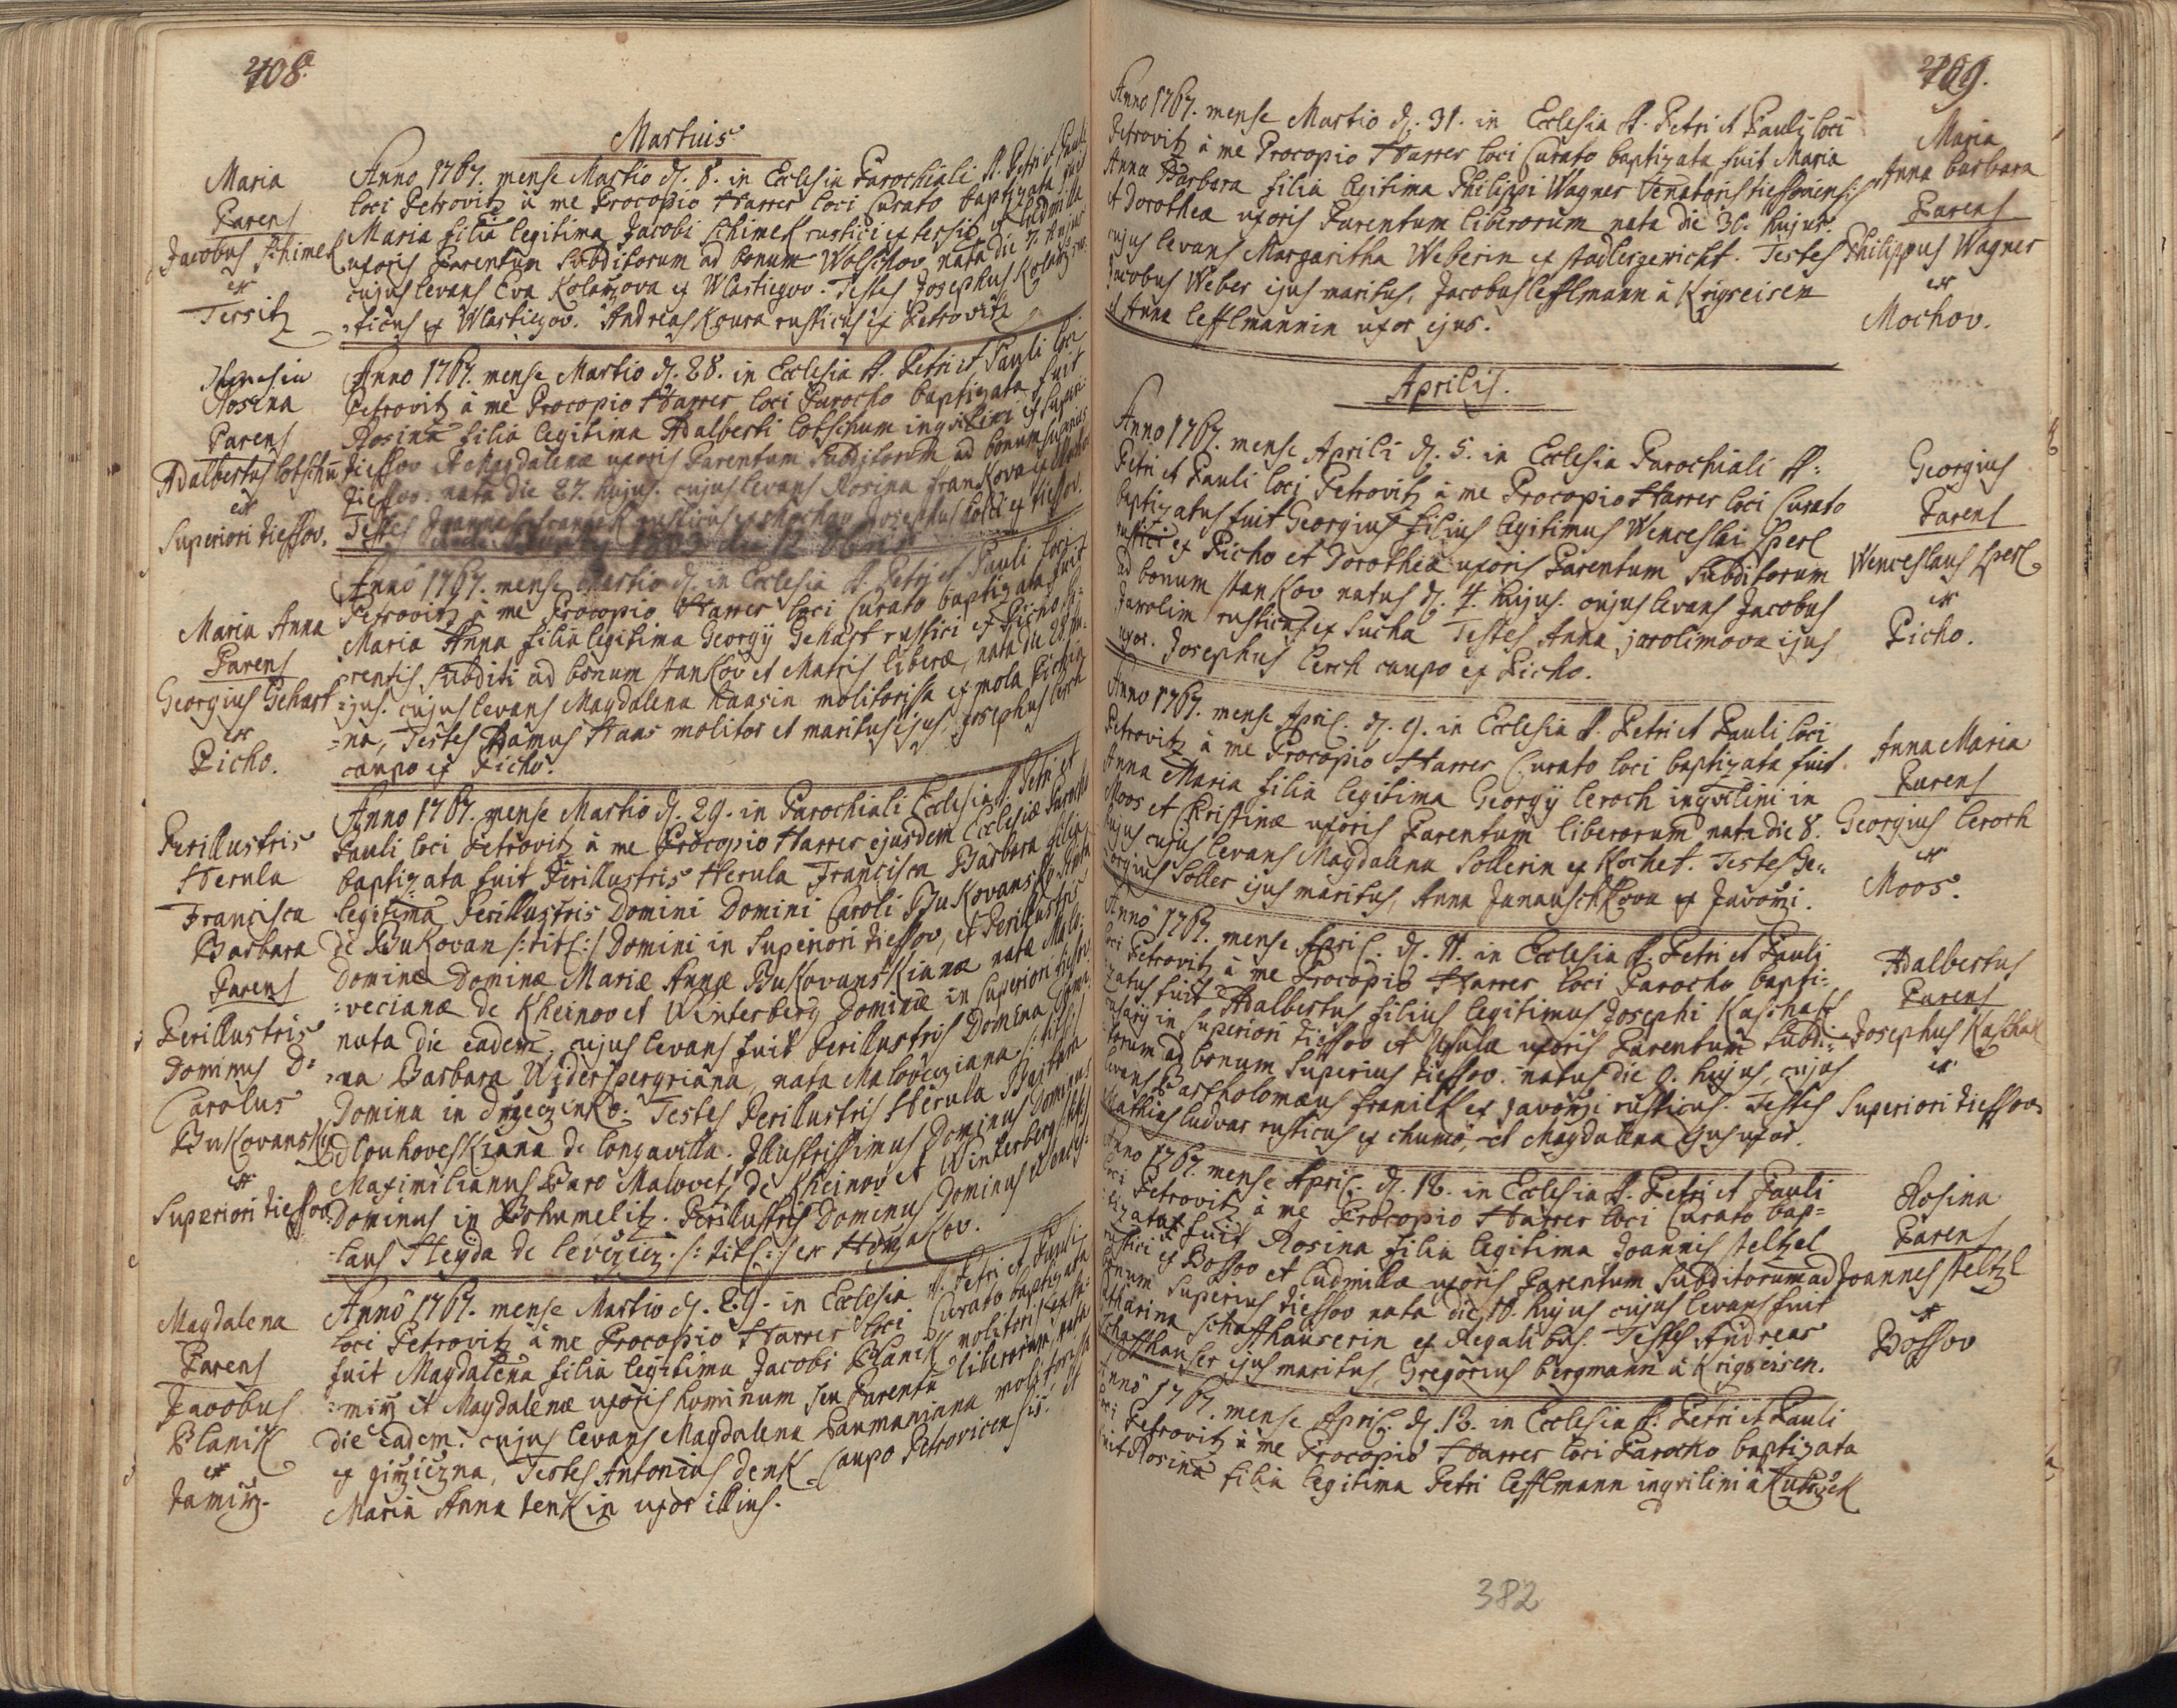 408.
Martius
Maria
Parens
Jacobus Schimek
ex
Tersitz
Anno 1767. mense Martio d. 8. in Ecclesia Parochiali S. Petri et Pauli
loci Petrovitz à me Procopio Harrer loci Curato baptizata fuit
Maria filia legitima Jacobi Schimek rustici ex Tersitz et Ludmilla
uxoris Parentum Subditorum ad bonum Wolschov nata die 7. hujus
cujus levans Eva Kolarzova ex Wlastiegov. Testes Josephus Kolarz ru-
=sticus ex Wlastiegov. Andreas Koura rusticus ex Petrovitz
Rosina
Parens
Adalbertus Lotschum
ex
Superiori Tiessov.
Anno 1767. mense Martio d. 28. in Ecclesia S. Petri et Pauli loci
Petrovitz à me Procopio Harrer loci Parocho baptizata fuit
Rosina filia legitima Adalberti Lotschum inquilini ex Superi-
Tiessov et Magdalenæ uxoris Parentum Subditorum ad bonum Superius
Tiessov. nata die 27. hujus. cujus levans Rosina Frankova ex
Testes Joannes rusticus Josephus ex Tiessov.
Maria Anna
Parens
Georgius Gehart
ex
Picho.
Anno 1767. mense Martio d. in Ecclesia S. Petri et Pauli loci
Petrovitz à me Procopio Harrer loci Curato baptizata fuit
Maria Anna filia legitima Georgij Gehart rustici ex Picho Pa-
=rentis subditi ad bonum Stankov et Matris liberæ, nata die 28. hu-
=jus. cujus levans Magdalena Haasin molitorissa ex mola Pichia-
=na, Testes Adamus Haas molitor et maritus ejus, Josephus Lerch
caupo ex Picho.
Perillustris
Herula
Francisca
Barbara
Parens
Perillustris
Dominus D:
Carolus
Bukovansky
ex
Superiori Tiessov
Anno 1767. mense Martio d. 29. in Parochiali Ecclesia S. Petri et
Pauli loci Petrovitz à me Procopio Harrer ejusdem Ecclesiæ Parocho
baptizata fuit Perillustris Herula Francisca Barbara filia
legitima Perillustris Domini Domini Caroli Bukovansky
de Bukovan /:titl:/ Domini in Superiori Tiessov, et Perillustris
Dominæ Dominæ Mariæ Annæ Bukovanskianæ natæ Malo-
=vecianæ de Kheinov et Winterberg Dominæ in Superiori Tiessov
nata die eadem, cujus levans fuit Perillustris Domina Domi-
=na Barbara Widerspergriana, nata Malovecziana /:titl:/
Domina in Drzeczinko. Testes Perillustris Herula Barbara
Dlouhoveskiana de Longavilla. Illustrissimus Dominus Dominus
Maximilianus Baro Malovetz de Kheinov et Winterberg /:titl:/
Dominus in Bohumelitz. Perillustris Dominus Dominus Wences-
=laus Heyda de Leviczicz. /:titl:/ ex
Magdalena
Parens
Jacobus
Planik
ex
Jamitz.
Anno 1767. mense Martio d. 29. in Ecclesia S. Petri et Pauli
loci Petrovitz à me Procopio Harrer loci Curato baptizata
fuit Magdalena filia legitima Jacobi Planik molitoris ex Ja-
=mitz et Magdalenæ uxoris hominum seu Parentu liberorum, nata
die eadem. cujus levans Magdalena Paumaninna molitorissa
ex Testes Antonius Denk Caupo Petroviciensis, et
Maria Anna Denkin uxor illius.
409.
Anno 1767. mense Martio d. 31. in Ecclesia S. Petri et Pauli loci
Petrovitz à me Procopio Harrer loci Curato baptizata fuit Maria
Anna Barbara filia legitima Philippi Wagner Senatoris
et Dorotheæ uxoris Parentum liberorum nata die 30. hujus.
cujus levans Margaritha Weberin ex Stadlergericht. Testes
Jacobus Weber ejus maritus, Jacobus Lefflmann à Krigseisen
et Anna Lefflmannin uxor ejus.
Maria
Anna Barbara
Parens
Philippus Wagner
ex
Mochov.
Aprilis.
Anno 1767. mense Aprili d. 5. in Ecclesia Parochiali S:
Petri et Pauli loci Petrovitz à me Procopio Harrer loci Curato
baptizatus fuit Georgius filius legitimus Wenceslai Sperl
rustici ex Picho et Dorotheæ uxoris Parentum Subditorum
ad bonum Stankov natus d. 4. hujus. cujus levans Jacobus
Jarolim rusticus ex Sucha Testes Anna Jarolimova ejus
uxor. Josephus Lerch caupo ex Picho.
Georgius
Parens
Wenceslaus Sperl
ex
Picho.
Anno 1767. mense April. d. 9. in Ecclesia S. Petri et Pauli loci
Petrovitz à me Procopio Harrer Curato loci baptizata fuit
Anna Maria filia legitima Georgij Leroch inquilini in
Moos et Kristinæ uxoris Parentum liberorum nata die 8.
hujus cujus levans Magdalena Sollerin ex Kochet. Testes Ge-
orgius Soller ejus maritus, Anna Janauschkova ex Javorzi.
Anna Maria
Parens
Georgius Leroch
ex
Moos.
Anno 1767. mense April. d. 11. in Ecclesia S. Petri et Pauli
loci Petrovitz à me Procopio Harrer loci Parocho bapti-
zatus fuit Adalbertus filius legitimus Josephi Kaschak
in Superiori Tiessov et uxoris Parentum Subdi-
torum ad bonum Superius Tiessov. natus die 9. hujus, cujus
levans Bartholomæus Franick ex Javorzi rusticus. Testes
Mathias Ludvar rusticus ex Chumo, et Magdalena ejus uxor.
Adalbertus
Parens
Josephus Kaschak
ex
Superiori Tiessov.
Anno 1767. mense April. d. 12. in Ecclesia S. Petri et Pauli
loci Petrovitz à me Procopio Harrer loci Curato bap-
tizata fuit Rosina filia legitima Joannis Steltzel
rustici ex Bossov et Ludmillæ uxoris Parentum Subditorum ad
bonum Superius Tiessov nata die 10. hujus cujus levans fuit
Catharina Schaffhauserin ex Regalibus. Testes Andreas
Schaffhauser ejus maritus, Gregorius Bergmann à Krigseisen.
Rosina
Parens
Joannes Steltzl
ex
Bossov
Anno 1767. mense April. d. 12. in Ecclesia S. Petri et Pauli
loci Petrovitz à me Procopio Harrer loci Parocho baptizata
fuit Rosina filia legitima Petri Lefflmann inquilini à
382